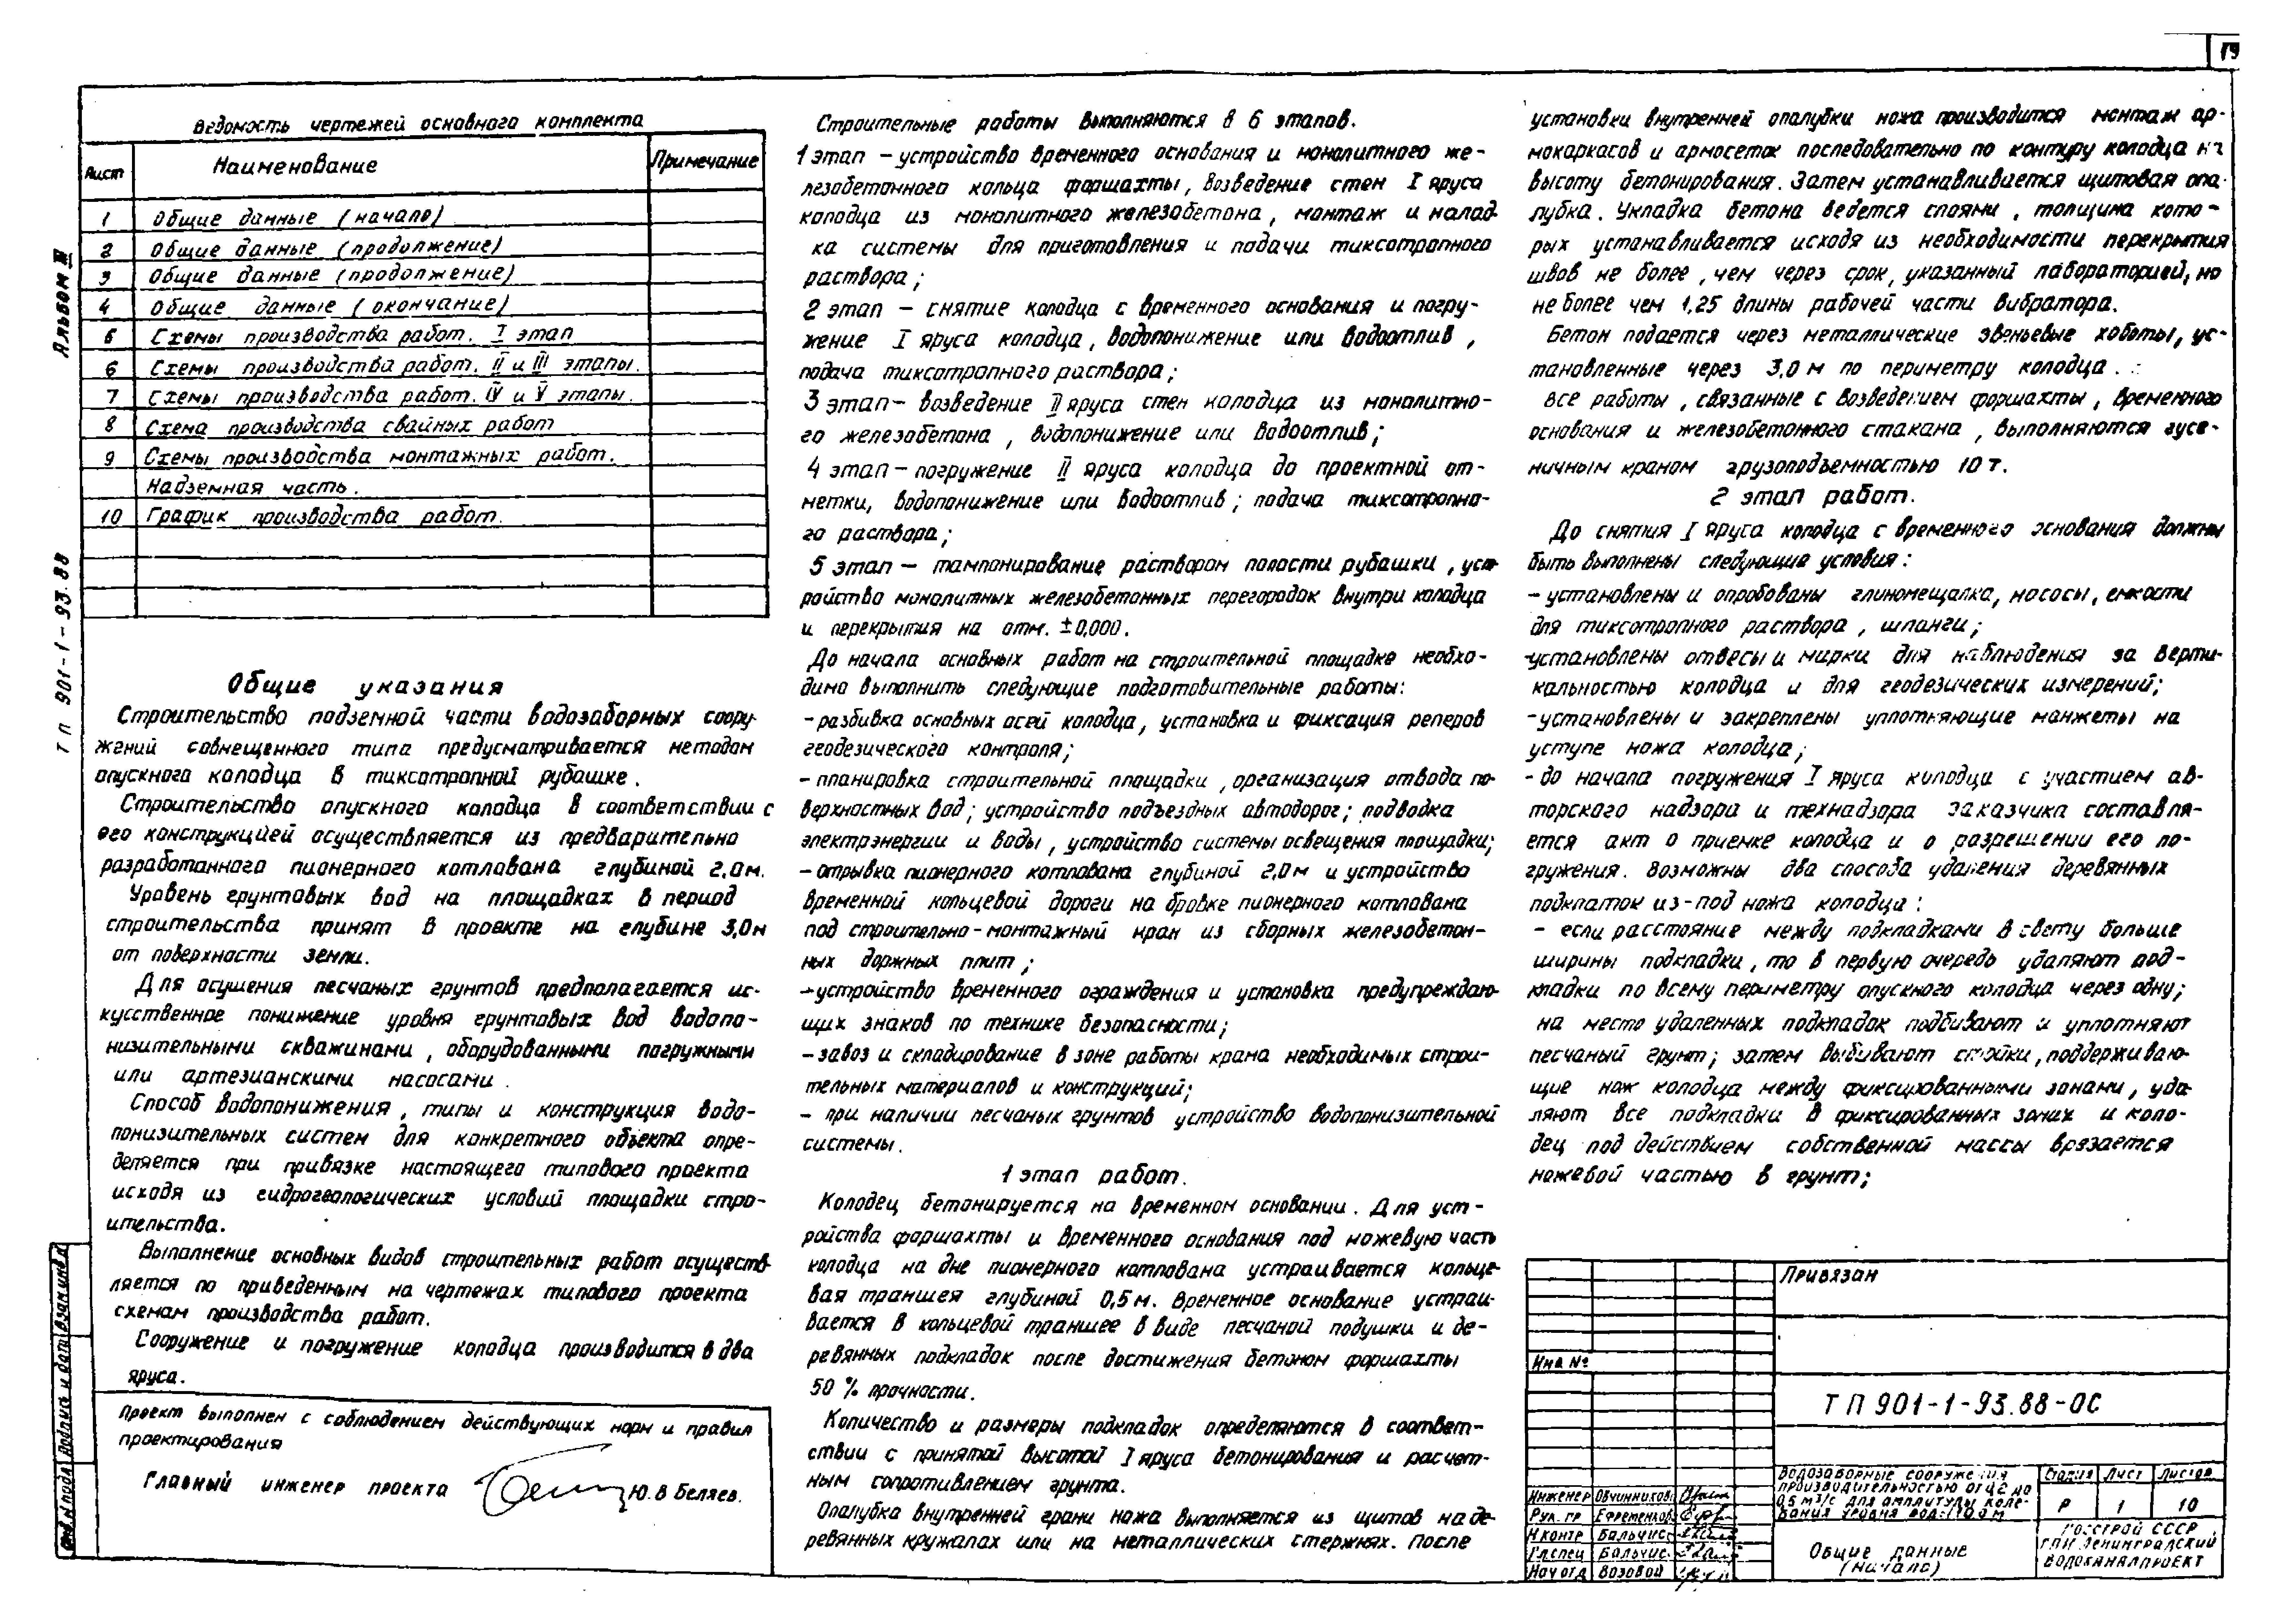 19
Альбом III
ТП 901-1-93.88
Ведомость чертежей основного комплекта
Лист Наименование Примечание
1 Общие данные (начало)
2 Общие данные (продолжение)
3 Общие данные (продолжение)
4 Общие данные (окончание)
5 Схемы производства работ. I этап
6 Схемы производства работ. II и III этапы.
7 Схемы производства работ. IV и V этапы.
8 Схема производства свайных работ
9 Схемы производства монтажных работ.
Надземная часть.
10 График производства работ.
Общие указания
Строительство подземной части водозаборных соору-
жений совмещенного типа предусматривается методом
опускного колодца в тиксотропной рубашке.
Строительство опускного колодца в соответствии с
его конструкцией осуществляется из предварительно
разработанного пионерного котлована глубиной 2,0м.
Уровень грунтовых вод на площадках в период
строительства принят в проекте на глубине 3,0м
от поверхности земли.
Для осушения песчаных грунтов предполагается ис-
кусственное понижение уровня грунтовых вод водопо-
низительными скважинами, оборудованными погружными
или артезианскими насосами.
Способ водопонижения, типы и конструкция водо-
понизительных систем для конкретного объекта опре-
деляется при привязке настоящего типового проекта
исходя из гидрогеологических условий площадки стро-
ительства.
Выполнение основных видов строительных работ осуществ-
ляется по приведенным на чертежах типового проекта
схемам производства работ.
Сооружение и погружение колодца производится в два
яруса.
Проект выполнен с соблюдением действующих норм и правил
проектирования
Главный инженер проекта Ю.В Беляев.
Строительные работы выполняются в 6 этапов.
1 этап – устройство временного основания и монолитного же-
лезобетонного кольца форшахты, возведение стен I яруса
колодца из монолитного железобетона, монтаж и налад-
ка системы для приготовления и подачи тиксотропного
раствора;
2 этап – снятие колодца с временного основания и погру-
жение I яруса колодца, водопонижение или водоотлив,
подача тиксотропного раствора;
3 этап – возведение II яруса стен колодца из монолитно-
го железобетона, водопонижение или водоотлив;
4 этап – погружение II яруса колодца до проектной от-
метки, водопонижение или водоотлив; подача тиксотропно-
го раствора;
5 этап – тампонирование раствором полости рубашки, уст-
ройство монолитных железобетонных перегородок внутри колодца
и перекрытия на отм. ±0,000.
До начала основных работ на строительной площадке необхо-
димо выполнить следующие подготовительные работы:
– разбивка основных осей колодца, установка и фиксация реперов
геодезического контроля;
– планировка строительной площадки, организация отвода по-
верхностных вод; устройство подъездных автодорог; подводка
электрэнергии и воды, устройство системы освещения площадки;
– отрывка пионерного котлована глубиной 2,0м и устройство
временной кольцевой дороги на бровке пионерного котлована
под строительно-монтажный кран из сборных железобетон-
ных доржных плит;
– устройство временного ограждения и установка предупреждаю-
щих знаков по технике безопасности;
– завоз и складирование в зоне работы крана необходимых строи-
тельных материалов и конструкций;
– при наличии песчаных грунтов устройство водопонизительной
системы.
1 этап работ.
Колодец бетонируется на временном основании. Для уст-
ройства форшахты и временного основания под ножевую часть
колодца на дне пионерного котлована устраивается кольце-
вая траншея глубиной 0,5м. Временное основание устраи-
вается в кольцевой траншее в виде песчаной подушки и де-
ревянных подкладок после достижения бетоном форшахты
50 % прочности.
Количество и размеры подкладок определяются в соответ-
ствии с принятой высотой I яруса бетонирования и расчет-
ным сопротивлением грунта.
Опалубка внутренней грани ножа выполняется из щитов на де-
ревянных кружалах или на металлических стержнях. После
установки внутренней опалубки ножа производится монтаж ар-
мокаркасов и армосеток последовательно по контуру колодца на
высоту бетонирования. Затем устанавливается щитовая опа-
лубка. Укладка бетона ведется слоями, толщина кото-
рых устанавливается исходя из необходимости перекрытия
швов не более, чем через срок, указанный лабораторией, но
не более чем 1,25 длины рабочей части вибратора.
Бетон подается через металлические звеньевые хоботы, ус-
тановленные через 3,0м по периметру колодца.
Все работы, связанные с возведением форшахты, временного
основания и железобетонного стакана, выполняются гусе-
ничным краном грузоподъемностью 10т.
2 этап работ.
До снятия I яруса колодца с временного основания должны
быть выполнены следующие условия:
– установлены и опробованы глиномешалка, насосы, емкости
для тиксотропного раствора, шланги;
– установлены отвесы и марки для наблюдения за верти-
кальностью колодца и для геодезических измерений;
– установлены и закреплены уплотняющие манжеты на
уступе ножа колодца;
– до начала погружения I яруса колодца с участием ав-
торского надзора и технадзора заказчика составля-
ется акт о приемке колодца и о разрешении его по-
гружения. Возможны два способа удаления деревянных
подклаток из-под ножа колодца:
– если расстояние между подкладками в свету больше
ширины подкладки, то в первую очередь удаляют под-
кладки по всему периметру опускного колодца через одну;
на место удаленных подкладок подбивают и уплотняют
песчаный грунт; затем выбивают стойки, поддерживаю-
щие нож колодца между фиксированными зонами, уда-
ляют все подкладки в фиксированных зонах и коло-
дец под действием собственной массы врезается
ножевой частью в грунт;
Привязан
Инв №
ТП 901-1-93.88-ОС
Водозаборные сооружения
производительностью от 0,2 до
0,5 м³/с для амплитуды коле-
бания уровня вод
Стадия Лист Листов
Р 1 10
Инженер Овчинников
Рук. гр Ефременков
Н контр Бальчис
Гл.спец Бальчис
Нач отд Возовой
Общие данные
(начало)
Госстрой СССР
ГПИ Ленинградский
Водоканалпроект
Инв N подл Подпись и дата Взам инв N